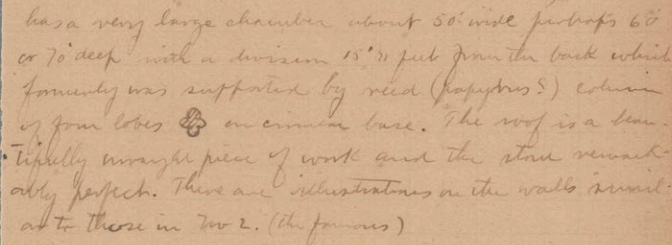 has a very large chamber about 50' wide perhaps 60'
or 70' deep with a division 15" feet from the back which
formerly was supported by reed (papyrus?) column
of four lobes on circular base. The roof is a beau-
tifully wrought piece of work and the stone remark-
ably perfect. There are illustrations on the walls simil-
ar to those in No 2. (the famous)